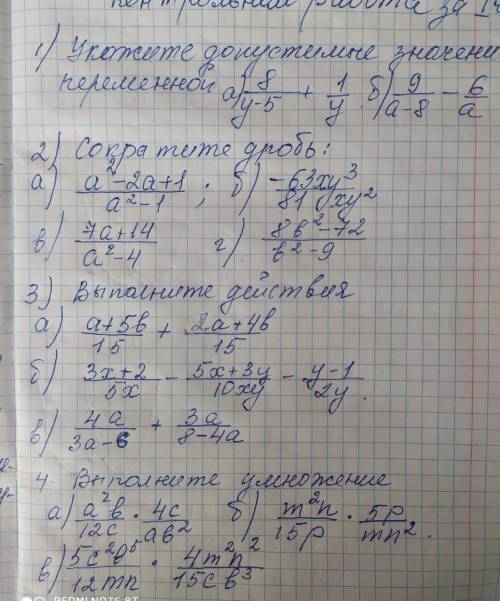 контрольная работа за
1) Укажите допустимые значени
переменной а) 8/(y-5) + 1/y б) 9/(a-8) - 6/a
2) Сократите дробь:
а) (a²-2a+1)/(a²-1) ; б) -63xy³/81xy²
в) (7a+14)/(a²-4) г) (8b²-72)/(b²-9)
3) Выполните действия
а) (a+5b)/15 + (2a+4b)/15
б) (3x+2)/5x - (5x+3y)/10xy - (y-1)/2y.
в) 4a/(3a-6) + 3a/(8-4a)
4. Выполните умножение
а) a²b/12c · 4c/ab² б) m²n/15p · 5p/mn².
в) 5c²b⁵/12mn · 4m²n²/15cb³
REDMI NOTE 8T